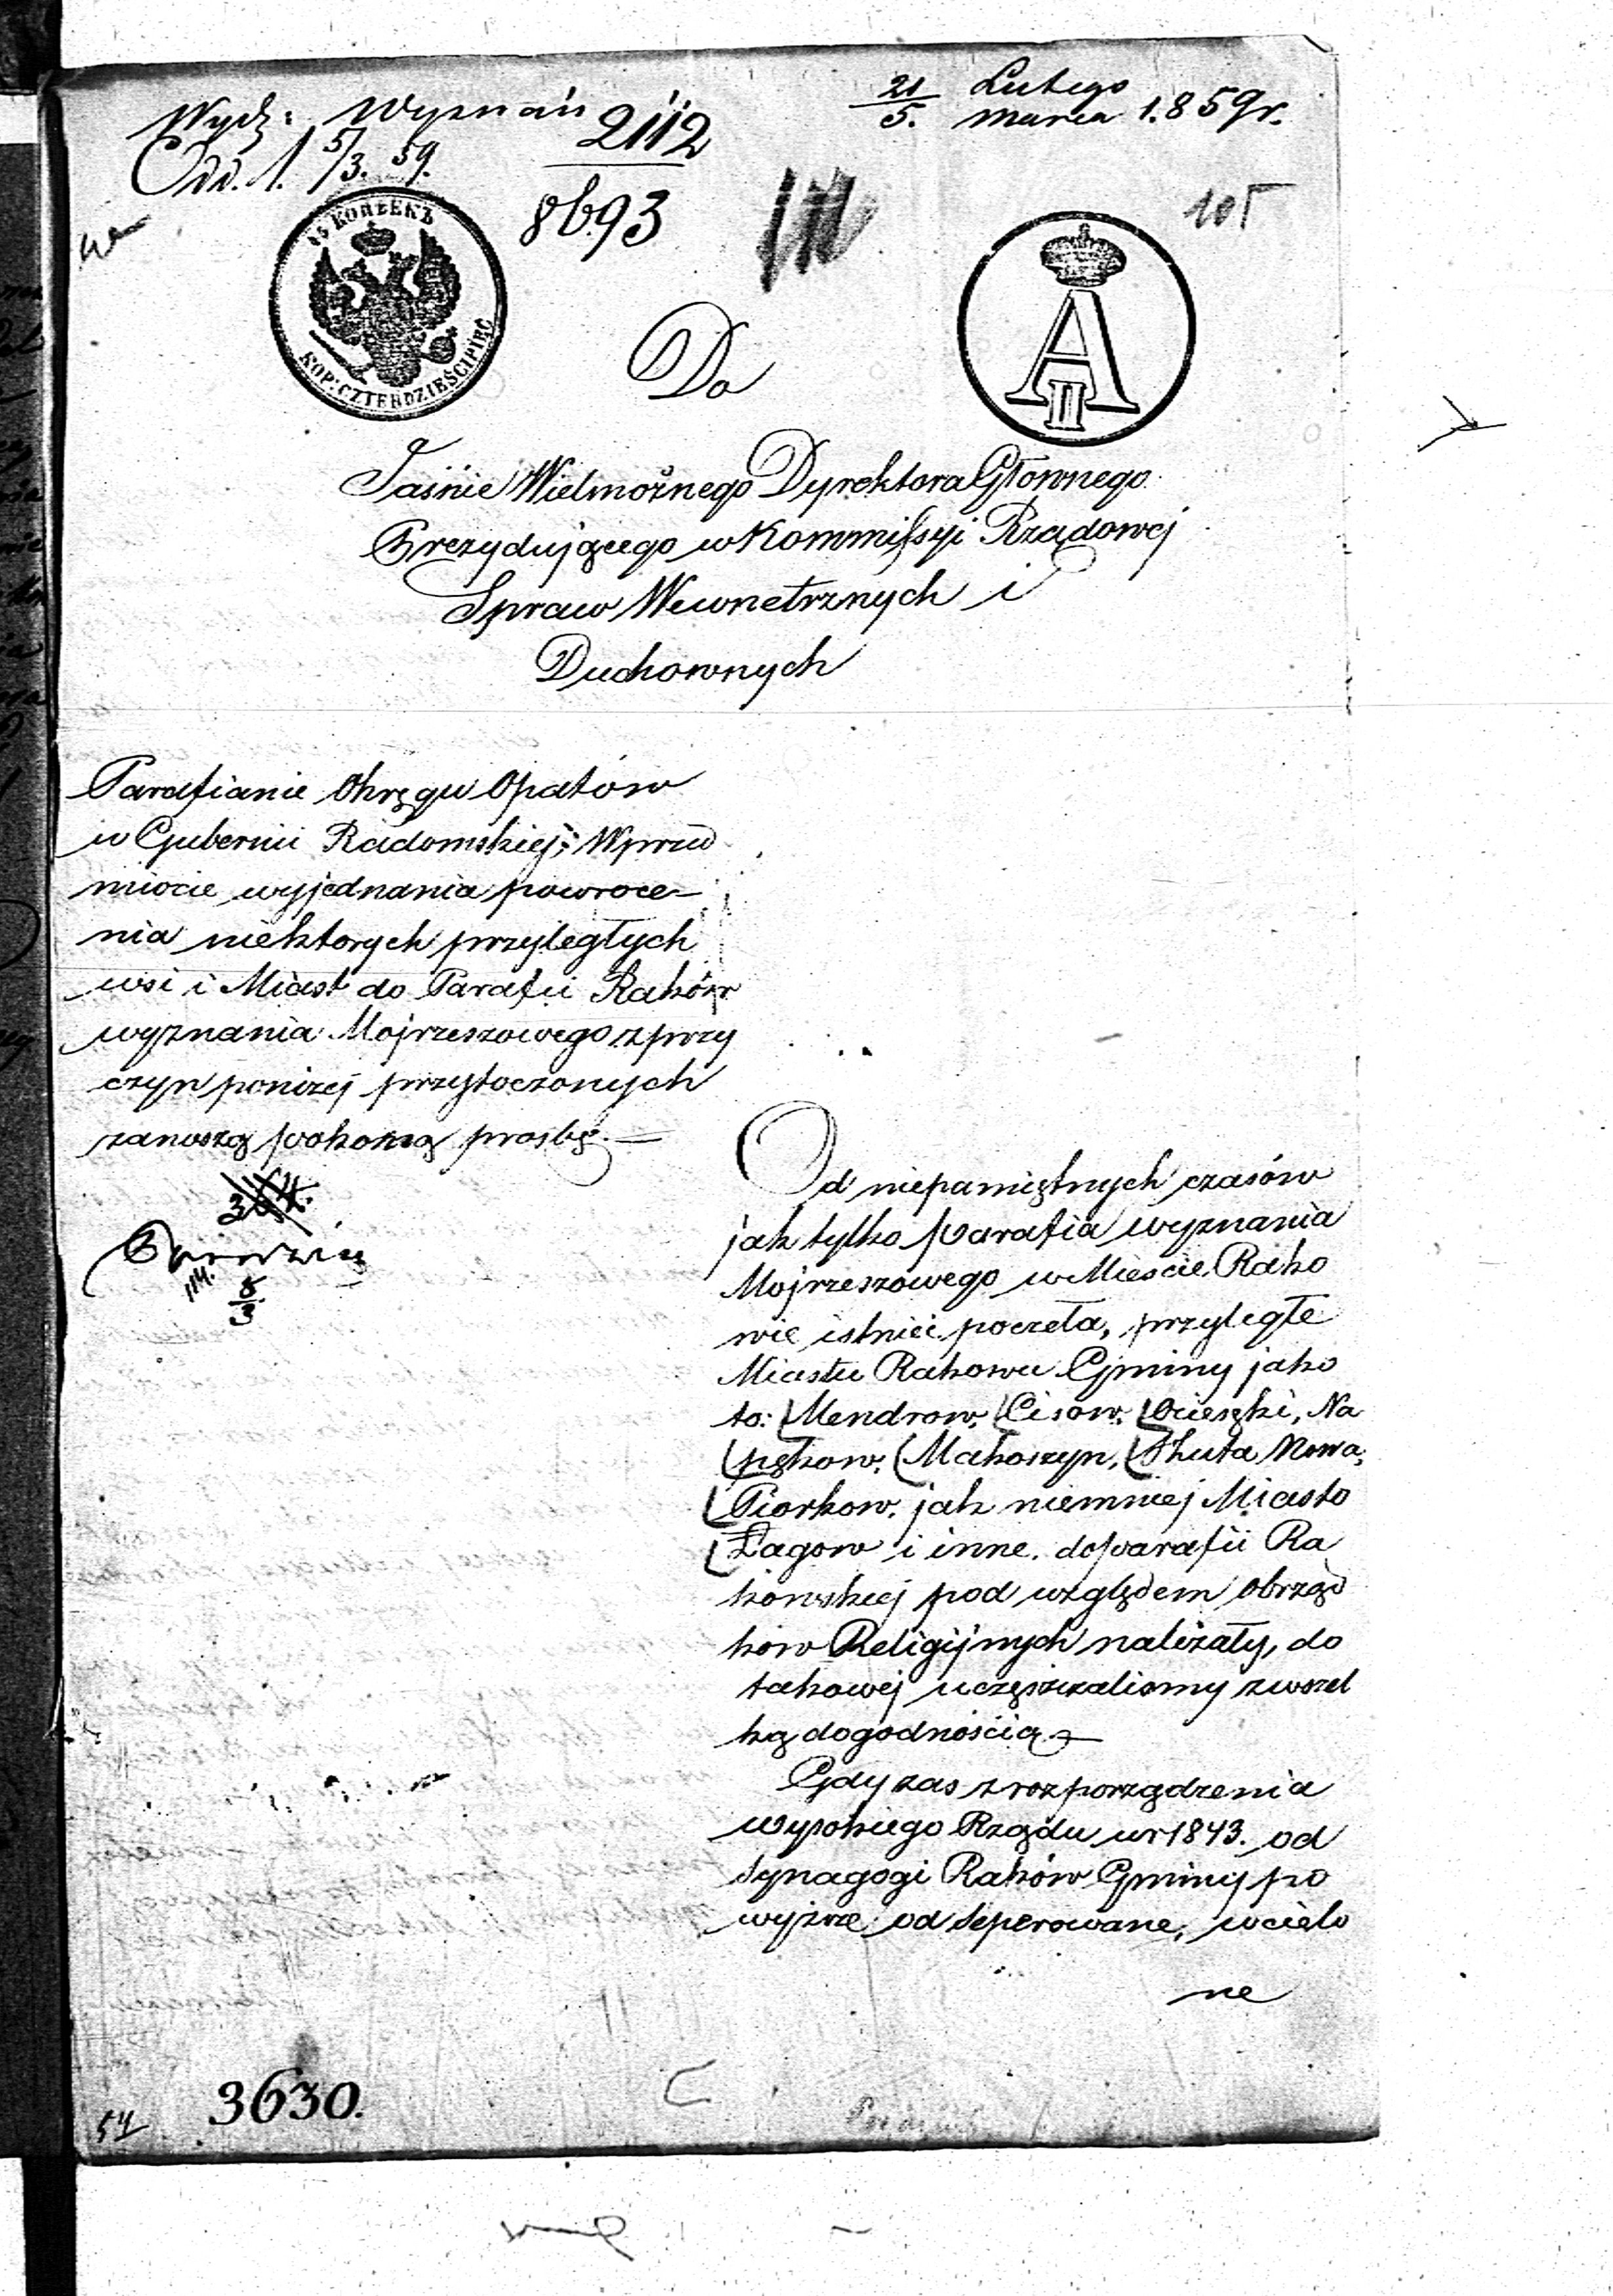 21/5. Lutego
marca 1.859r.
Wydz: Wyznań
Odd. 1. 5/3. 59.
2112
8693
105
45 КОПѢЕКЪ
KOP: CZTERDZIEŚCI PIĘĆ
A II
Do
Jaśnie Wielmożnego Dyrektora Głownego
Prezydującego w Kommissyi Rządowej
Spraw Wewnetrznych i
Duchownych
Parafianie Okręgu Opatów
w Gubernii Radomskiej; W przed
miocie wyjednania powroce-
nia niektorych przyległych
wsi i Miast do Parafii Raków
wyznania Mojrzeszowego z przy
czyn poniżej przytoczonych
zanoszą pokorną prosbę. —
364.
8/3
Od niepamiętnych czasów
jak tylko parafia wyznania
Mojrzeszowego w Miescie Rako
wie istnieć poczeła, przyległe
Miastu Rakowu Gminy jako
to: Mendrow, Cisow, Ocieseki, Na
pękow, Makoszyn, Huta Nowa,
Piorkow, jak niemniej Miasto
Łagow i inne. do parafii Ra
kowskiej pod względem obrząd
kow Religijnych należały, do
takowej uczęszczalismy z wszel
ką dogodnością —
Gdy zas z rozporządzenia
wysokiego Rządu w r 1843. od
Synagogi Raków Gminy po
wyższe od seperowane, wcielo
ne
3630.
54